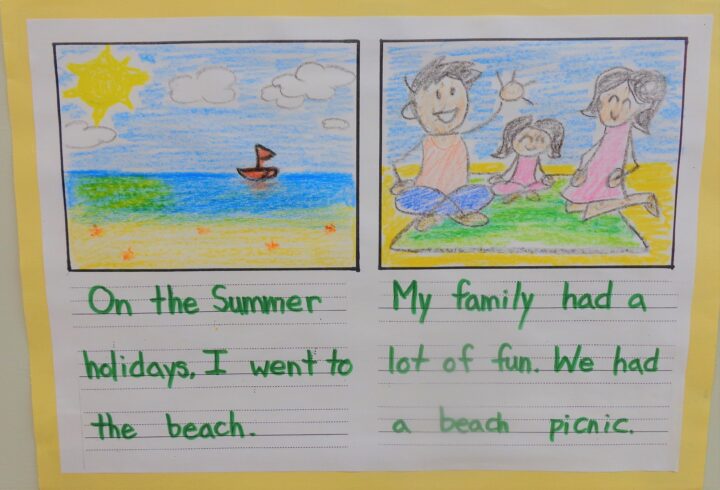 On the Summer
holidays, I went to
the beach.
My family had a
lot of fun. We had
a beach picnic.